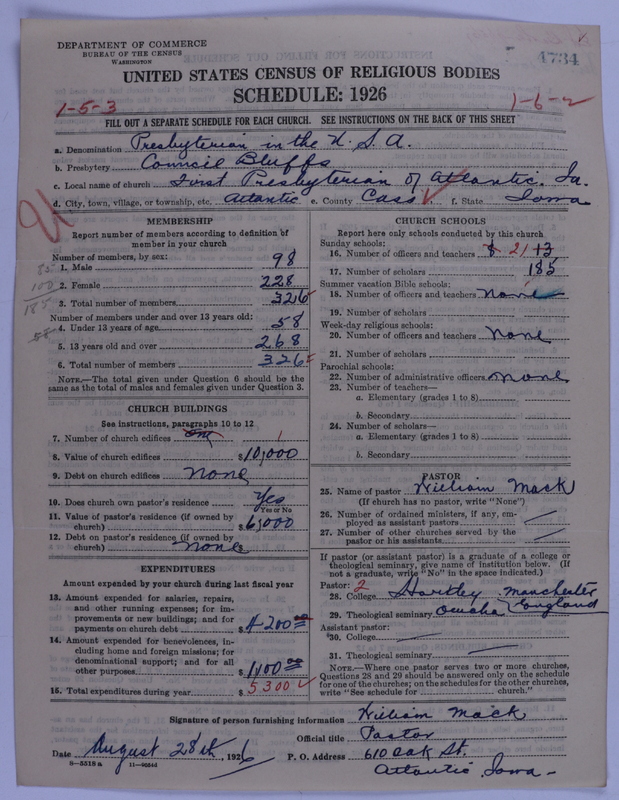 DEPARTMENT OF COMMERCE
BUREAU OF THE CENSUS
WASHINGTON
4734
UNITED STATES CENSUS OF RELIGIOUS BODIES
SCHEDULE: 1926
1-5-3
1-6-2
FILL OUT A SEPARATE SCHEDULE FOR EACH CHURCH. SEE INSTRUCTIONS ON THE BACK OF THIS SHEET
a. Denomination Presbyterian in the U. S. A.
b. Presbytery Council Bluffs
c. Local name of church First Presbyterian of Atlantic. Ia.
d. City, town, village, or township, etc. Atlantic e. County Cass f. State Iowa
MEMBERSHIP
Report number of members according to definition of member in your church
Number of members, by sex:
1. Male 98
2. Female 228
3. Total number of members 326
Number of members under and over 13 years old:
4. Under 13 years of age 58
5. 13 years old and over 268
6. Total number of members 326
NOTE.—The total given under Question 6 should be the
same as the total of males and females given under Question 3.
85
100
185
58
CHURCH BUILDINGS
See instructions, paragraphs 10 to 12
7. Number of church edifices one 1
8. Value of church edifices $10,000
9. Debt on church edifices none
10. Does church own pastor's residence Yes
Yes or No
11. Value of pastor's residence (if owned by
church) $6,000
12. Debt on pastor's residence (if owned by
church) none
EXPENDITURES
Amount expended by your church during last fiscal year
13. Amount expended for salaries, repairs,
and other running expenses; for im-
provements or new buildings; and for
payments on church debt $4200.00
14. Amount expended for benevolences, in-
cluding home and foreign missions; for
denominational support; and for all
other purposes $1100.00
15. Total expenditures during year $5300
CHURCH SCHOOLS
Report here only schools conducted by this church
Sunday schools:
16. Number of officers and teachers 8 21 13
17. Number of scholars 185
Summer vacation Bible schools:
18. Number of officers and teachers none
19. Number of scholars
Week-day religious schools:
20. Number of officers and teachers none
21. Number of scholars
Parochial schools:
22. Number of administrative officers none
23. Number of teachers—
a. Elementary (grades 1 to 8)
b. Secondary
24. Number of scholars—
a. Elementary (grades 1 to 8)
b. Secondary
PASTOR
25. Name of pastor William Mack
(If church has no pastor, write "None")
26. Number of ordained ministers, if any, em-
ployed as assistant pastors
27. Number of other churches served by the
pastor or his assistants
If pastor (or assistant pastor) is a graduate of a college or
theological seminary, give name of institution below. (If
not a graduate, write "No" in the space indicated.)
Pastor: 2
28. College Hartley Manchester England
29. Theological seminary Omaha
Assistant pastor:
30. College
31. Theological seminary
NOTE.—Where one pastor serves two or more churches,
Questions 28 and 29 should be answered only on the schedule
for one of the churches; on the schedules for the other churches,
write "See schedule for church."
Signature of person furnishing information William Mack
Official title Pastor
Date August 28th, 1926 P. O. Address 610 Oak St.
Atlantic, Iowa
8-5518 a 11-9264d